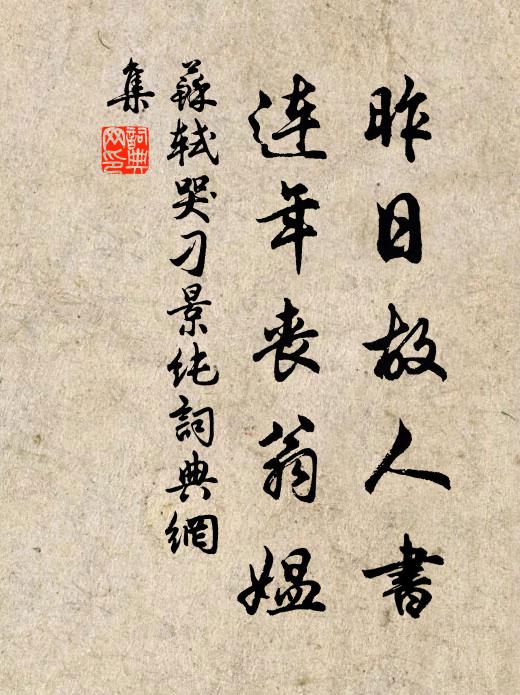 昨日故人書
連年喪翁媼
蘇軾哭刁景純詞典網
集
詞典網印